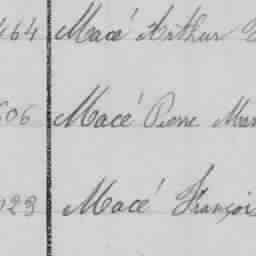 464 Macé Arthur
606 Macé Pierre Mar
023 Macé François